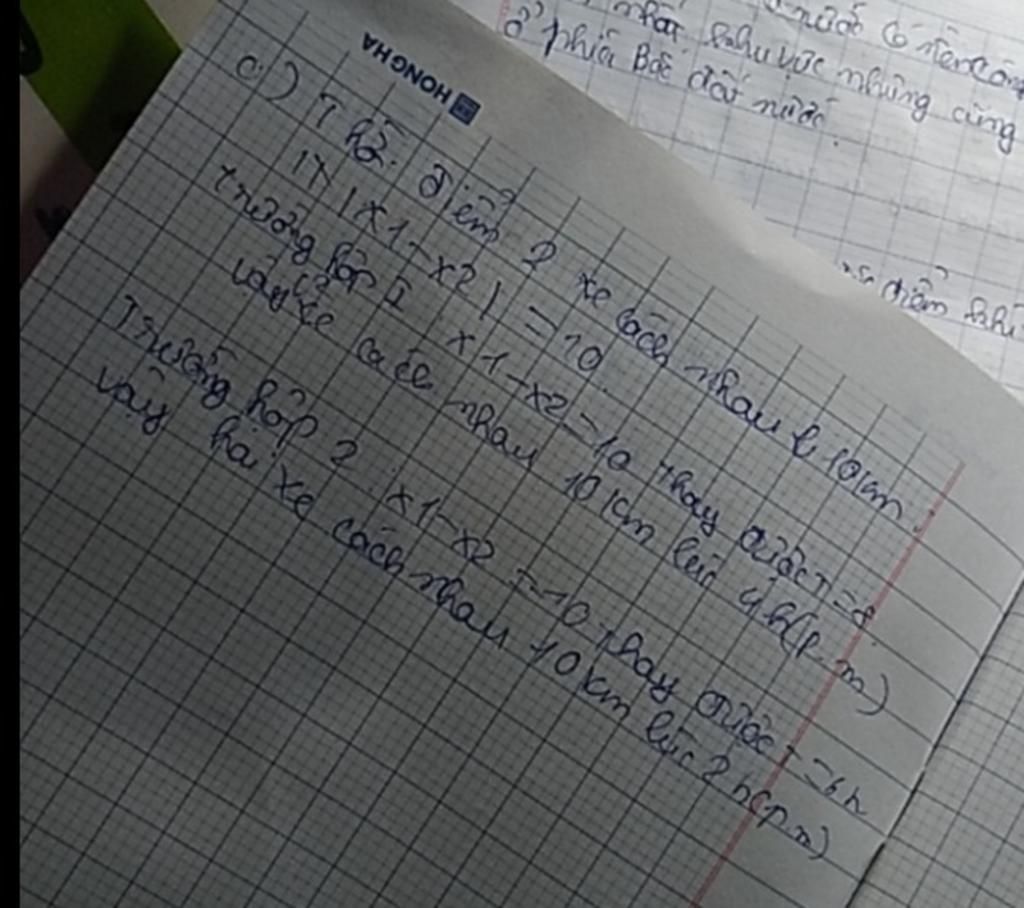 nước có nền công
nhất khu vực nhưng cũng
ở phía Bắc đất nước.
điểm khi
HONG HA
c.) Thời điểm 2 xe cách nhau l 10km.
|x1-x2| = 10
trường hợp 1 x1-x2=10 thay được T=8
vậy xe cách nhau 10km lúc 4h(p.m)
Trường hợp 2 x1-x2 =-10 thay được T=6h
vậy hai xe cách nhau 10km lúc 2h(p.m)